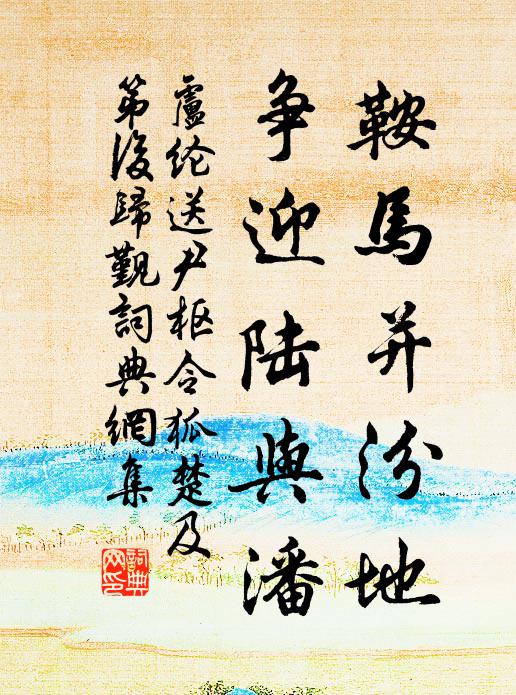 鞍馬并汾地
争迎陆與潘
盧纶送尹枢令狐楚及
第後歸觐詞典網集
詞典网印